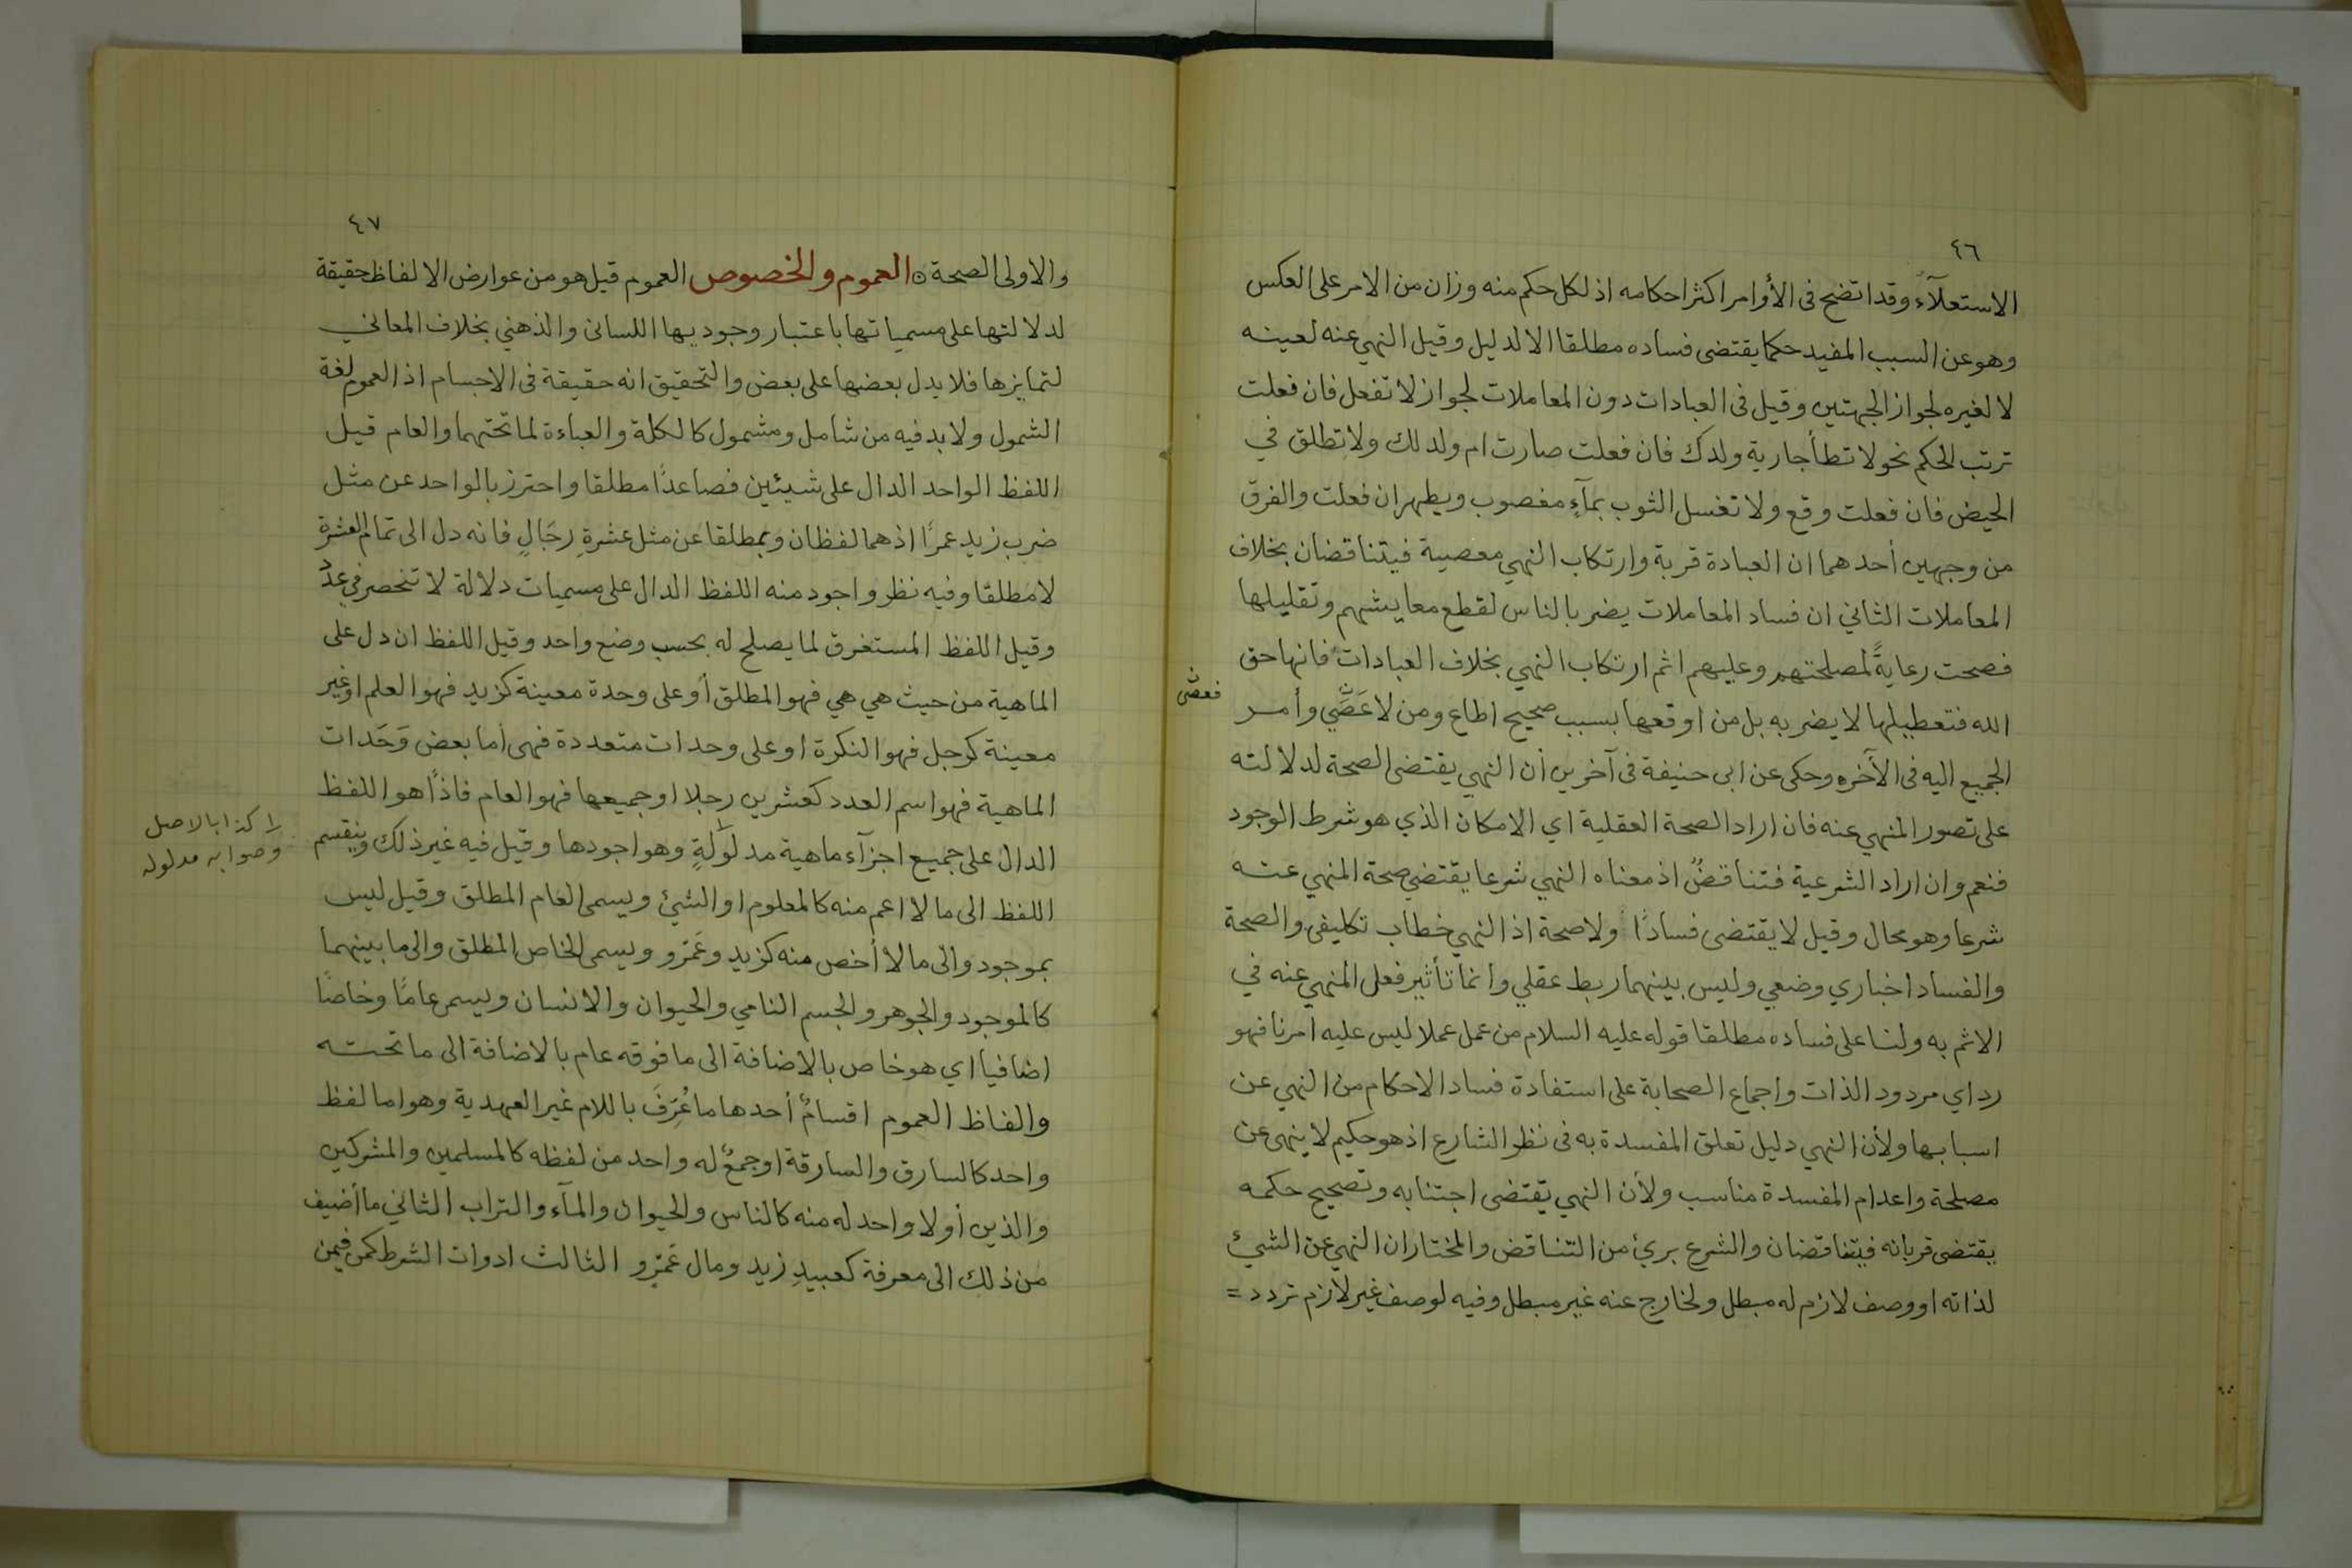 ٤٦
الاستعلآء وقد اتضح في الأوامر اكثر احكامه اذ لكل حكم منه وزان من الامر على العكس
وهو عن السبب المفيد حكما يقتضى فساده مطلقا الا لدليل وقيل النهي عنه لعينه
لا لغيره لجواز الجهتين وقيل فى العبادات دون المعاملات لجواز لا تفعل فان فعلت
ترتب الحكم نحو لا تطأ جارية ولدك فان فعلت صارت ام ولد لك ولا تطلق في
الحيض فان فعلت وقع ولا تغسل الثوب بمآءٍ مغصوب ويطهر ان فعلت والفرق
من وجهين أحدهما ان العبادة قربة وارتكاب النهي معصية فيتناقضان بخلاف
المعاملات الثاني ان فساد المعاملات يضر بالناس لقطع معايشهم وتقليلها
فصحت رعايةً لمصلحتهم وعليهم اثم ارتكاب النهي بخلاف العبادات فانها حق
الله فتعطيلها لا يضر به بل من اوقعها بسبب صحيح اطاع ومن لا عَصَّي وأمر
فعصى
الجميع اليه فى الآخره وحكى عن ابى حنيفة فى آخرين أن النهي يقتضى الصحة لدلالته
على تصور المنهي عنه فان اراد الصحة العقلية اي الامكان الذي هو شرط الوجود
فنعم وان اراد الشرعية فتناقضٌ اذ معناه النهي شرعا يقتضي صحة المنهي عنه
شرعا وهو محال وقيل لا يقتضى فسادًا ولا صحة اذ النهي خطاب تكليفى والصحة
والفساد اخباري وضعي وليس بينهما ربط عقلي وانما تأثير فعل المنهي عنه في
الاثم به ولنا على فساده مطلقا قوله عليه السلام من عمل عملا ليس عليه امرنا فهو
رد اي مردود الذات واجماع الصحابة على استفادة فساد الاحكام من النهي عن
اسبابها ولأن النهي دليل تعلق المفسدة به فى نظر الشارع اذ هو حكيم لا ينهى عن
مصلحة واعدام المفسدة مناسب ولأن النهي يقتضى اجتنابه وتصحيح حكمه
يقتضى قربانه فيتناقضان والشرع بريئ من التناقض والمختار ان النهي عن الشيئ
لذاته او وصف لازم له مبطل ولخارج عنه غير مبطل وفيه لوصف غير لازم تردد =
٤٧
والاولى الصحة ٥ العموم والخصوص العموم قيل هو من عوارض الالفاظ حقيقة
لدلالتها على مسمياتها باعتبار وجوديها اللسانى والذهني بخلاف المعاني
لتمايزها فلا يدل بعضها على بعض والتحقيق انه حقيقة فى الاجسام اذ العموم لغة
الشمول ولا بد فيه من شامل ومشمول كالكلة والعباءة لما تحتهما والعام قيل
اللفظ الواحد الدال على شيئين فصاعدًا مطلقا واحترز بالواحد عن مثل
ضرب زيد عمرًا اذ هما لفظان وبمطلقا عن مثل عشرةِ رجَالٍ فانه دل الى تمام العشرة
لا مطلقا وفيه نظر واجود منه اللفظ الدال على مسميات دلالة لا تنحصر في عدد
وقيل اللفظ المستغرق لما يصلح له بحسب وضع واحد وقيل اللفظ ان دل على
الماهية من حيث هي هي فهو المطلق أو على وحدة معينة كزيد فهو العلم او غير
معينة كرجل فهو النكرة او على وحدات متعددة فهى أما بعض وَحَدات
الماهية فهو اسم العدد كعشرين رجلا او جميعها فهو العام فاذًا هو اللفظ
الدال على جميع اجزآء ماهية مدلولةٍ وهو اجودها وقيل فيه غير ذلك وينقسم
١/ كذا بالاصل
وصوابه مدلوله
اللفظ الى ما لا اعم منه كالمعلوم او الشيئ ويسمى العام المطلق وقيل ليس
بموجود والى ما لا أخص منه كزيد وعَمْرو ويسمى الخاص المطلق والى ما بينهما
كالموجود والجوهر والجسم النامي والحيوان والانسان ويسمى عامًا وخاصًا
اضافيا اي هو خاص بالاضافة الى ما فوقه عام بالاضافة الى ما تحته
والفاظ العموم اقسامٌ أحدها ما عُرِّفَ باللام غير العهدية وهو اما لفظ
واحد كالسارق والسارقة او جمعٌ له واحد من لفظه كالمسلمين والمشركين
والذين أو لا واحد له منه كالناس والحيوان والمآء والتراب الثاني ما أضيف
من ذلك الى معرفة كعبيدِ زيد ومال عَمرٍو الثالث ادوات الشرط كمن فيمن